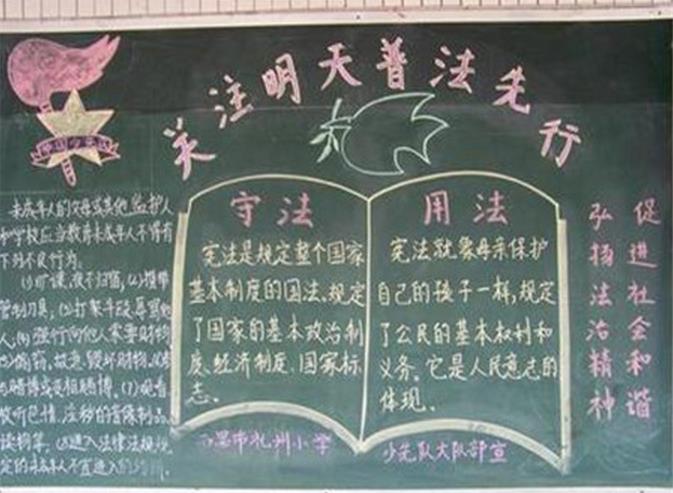 关注明天普法先行
中国少先队
未成年人的父母或其他监护人
和学校应当教育未成年人不得有
下列不良行为。
(1)旷课、夜不归宿,(2)携带
管制刀具,(3)打架斗殴、辱骂他
人,(4)强行向他人索要财物
偷窃、故意毁坏财物,
赌博或变相赌博。(7)观看
收听色情、淫秽的音像制品、
读物等。(8)进入法律法规规
定的未成年人不宜进入的
守法
宪法是规定整个国家
基本制度的国法,规定
了国家的基本政治制
度、经济制度、国家标
志。
用法
宪法就象母亲保护
自己的孩子一样,规定
了公民的基本权利和
义务。它是人民意志的
体现。
市礼州小学
少先队大队部宣
促进社会和谐
弘扬法治精神